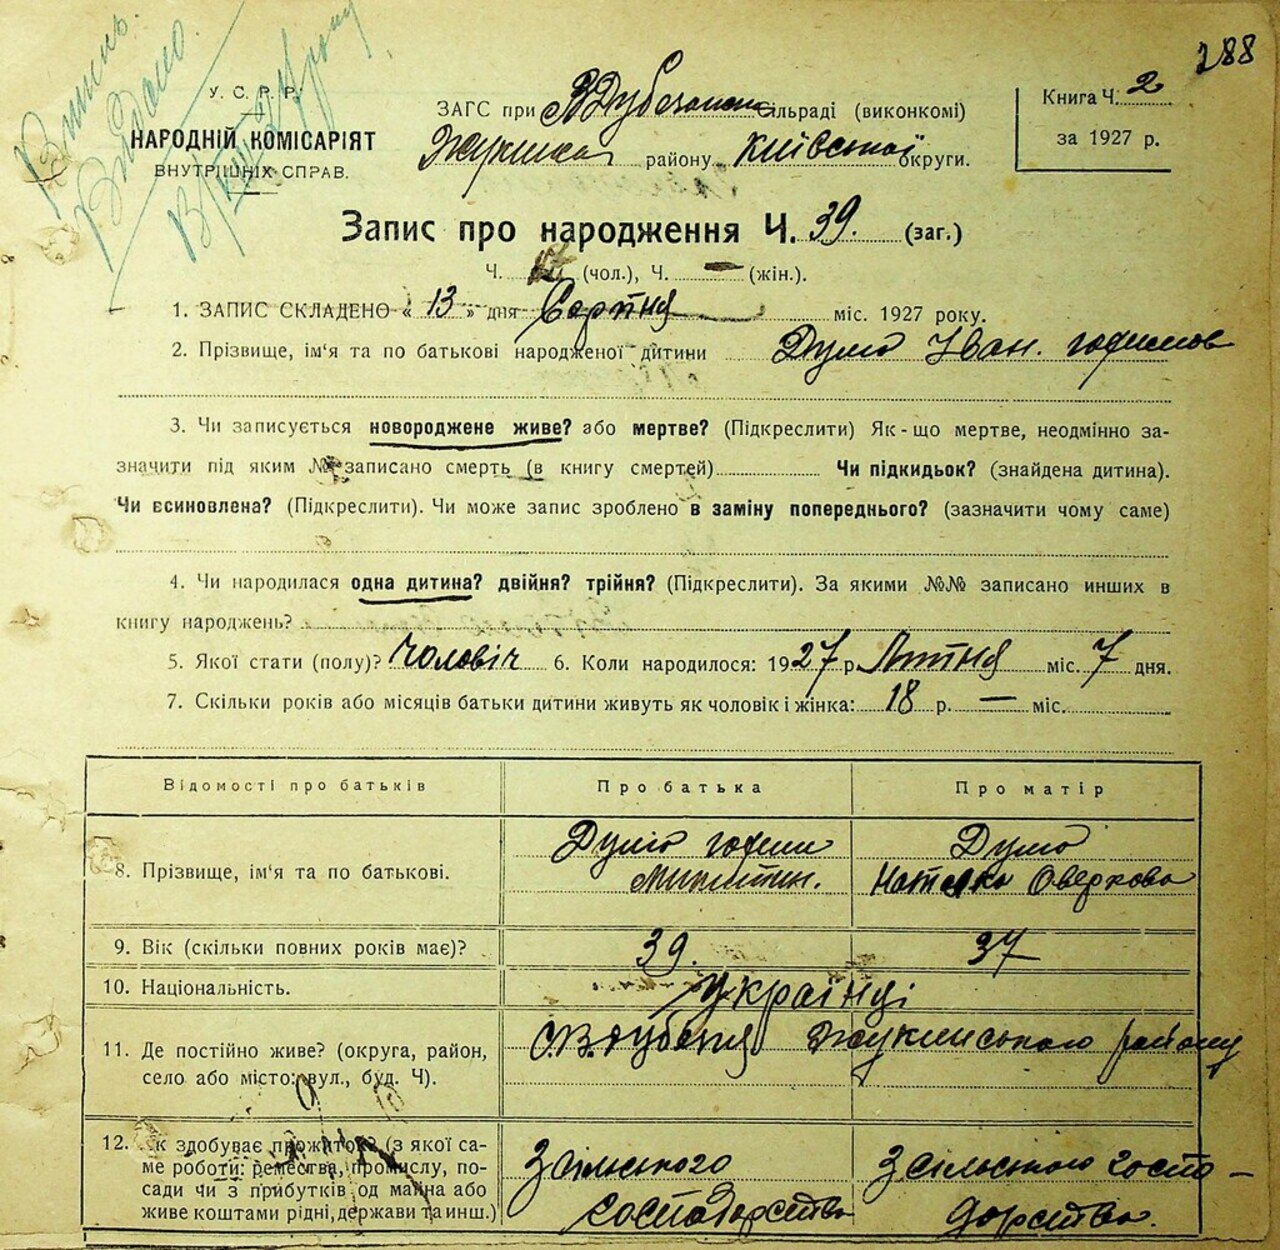 288
Випись
Видано
У. С. Р. Р.
НАРОДНІЙ КОМІСАРІЯТ
ВНУТРІШНІХ СПРАВ.
ЗАГС при В Дубечанск сільраді (виконкомі)
Жукинськ району Київської округи.
Книга Ч. 2
за 1927 р.
Запис про народження Ч. 39. (заг.)
Ч. (чол.), Ч. — (жін.).
1. ЗАПИС СКЛАДЕНО « 13 » дня Серпня міс. 1927 року.
2. Прізвище, ім'я та по батькові народженої дитини Думо Іван.
3. Чи записується новороджене живе? або мертве? (Підкреслити) Як-що мертве, неодмінно за-
значити під яким № записано смерть (в книгу смертей) Чи підкидьок? (знайдена дитина).
Чи всиновлена? (Підкреслити). Чи може запис зроблено в заміну попереднього? (зазначити чому саме)
4. Чи народилася одна дитина? двійня? трійня? (Підкреслити). За якими №№ записано инших в
книгу народжень?
5. Якої стати (полу)? Чоловіч 6. Коли народилося: 1927 р. Липня міс. 7 дня.
7. Скільки років або місяців батьки дитини живуть як чоловік і жінка: 18 р. — міс.
Відомості про батьків Про батька Про матір
8. Прізвище, ім'я та по батькові.
Думо
Микитин.
Думо
Наталка Оверкова
9. Вік (скільки повних років має)? 39. 37
10. Національність. Українці
11. Де постійно живе? (округа, район,
село або місто: вул., буд. Ч).
С. В. Дубечня Жукинського району
12. Як здобуває прожиток? (з якої са-
ме роботи: ремества, промислу, по-
сади чи з прибутків од майна або
живе коштами рідні, держави та инш.)
З сільського
господарства
З сільського госпо-
дарства.